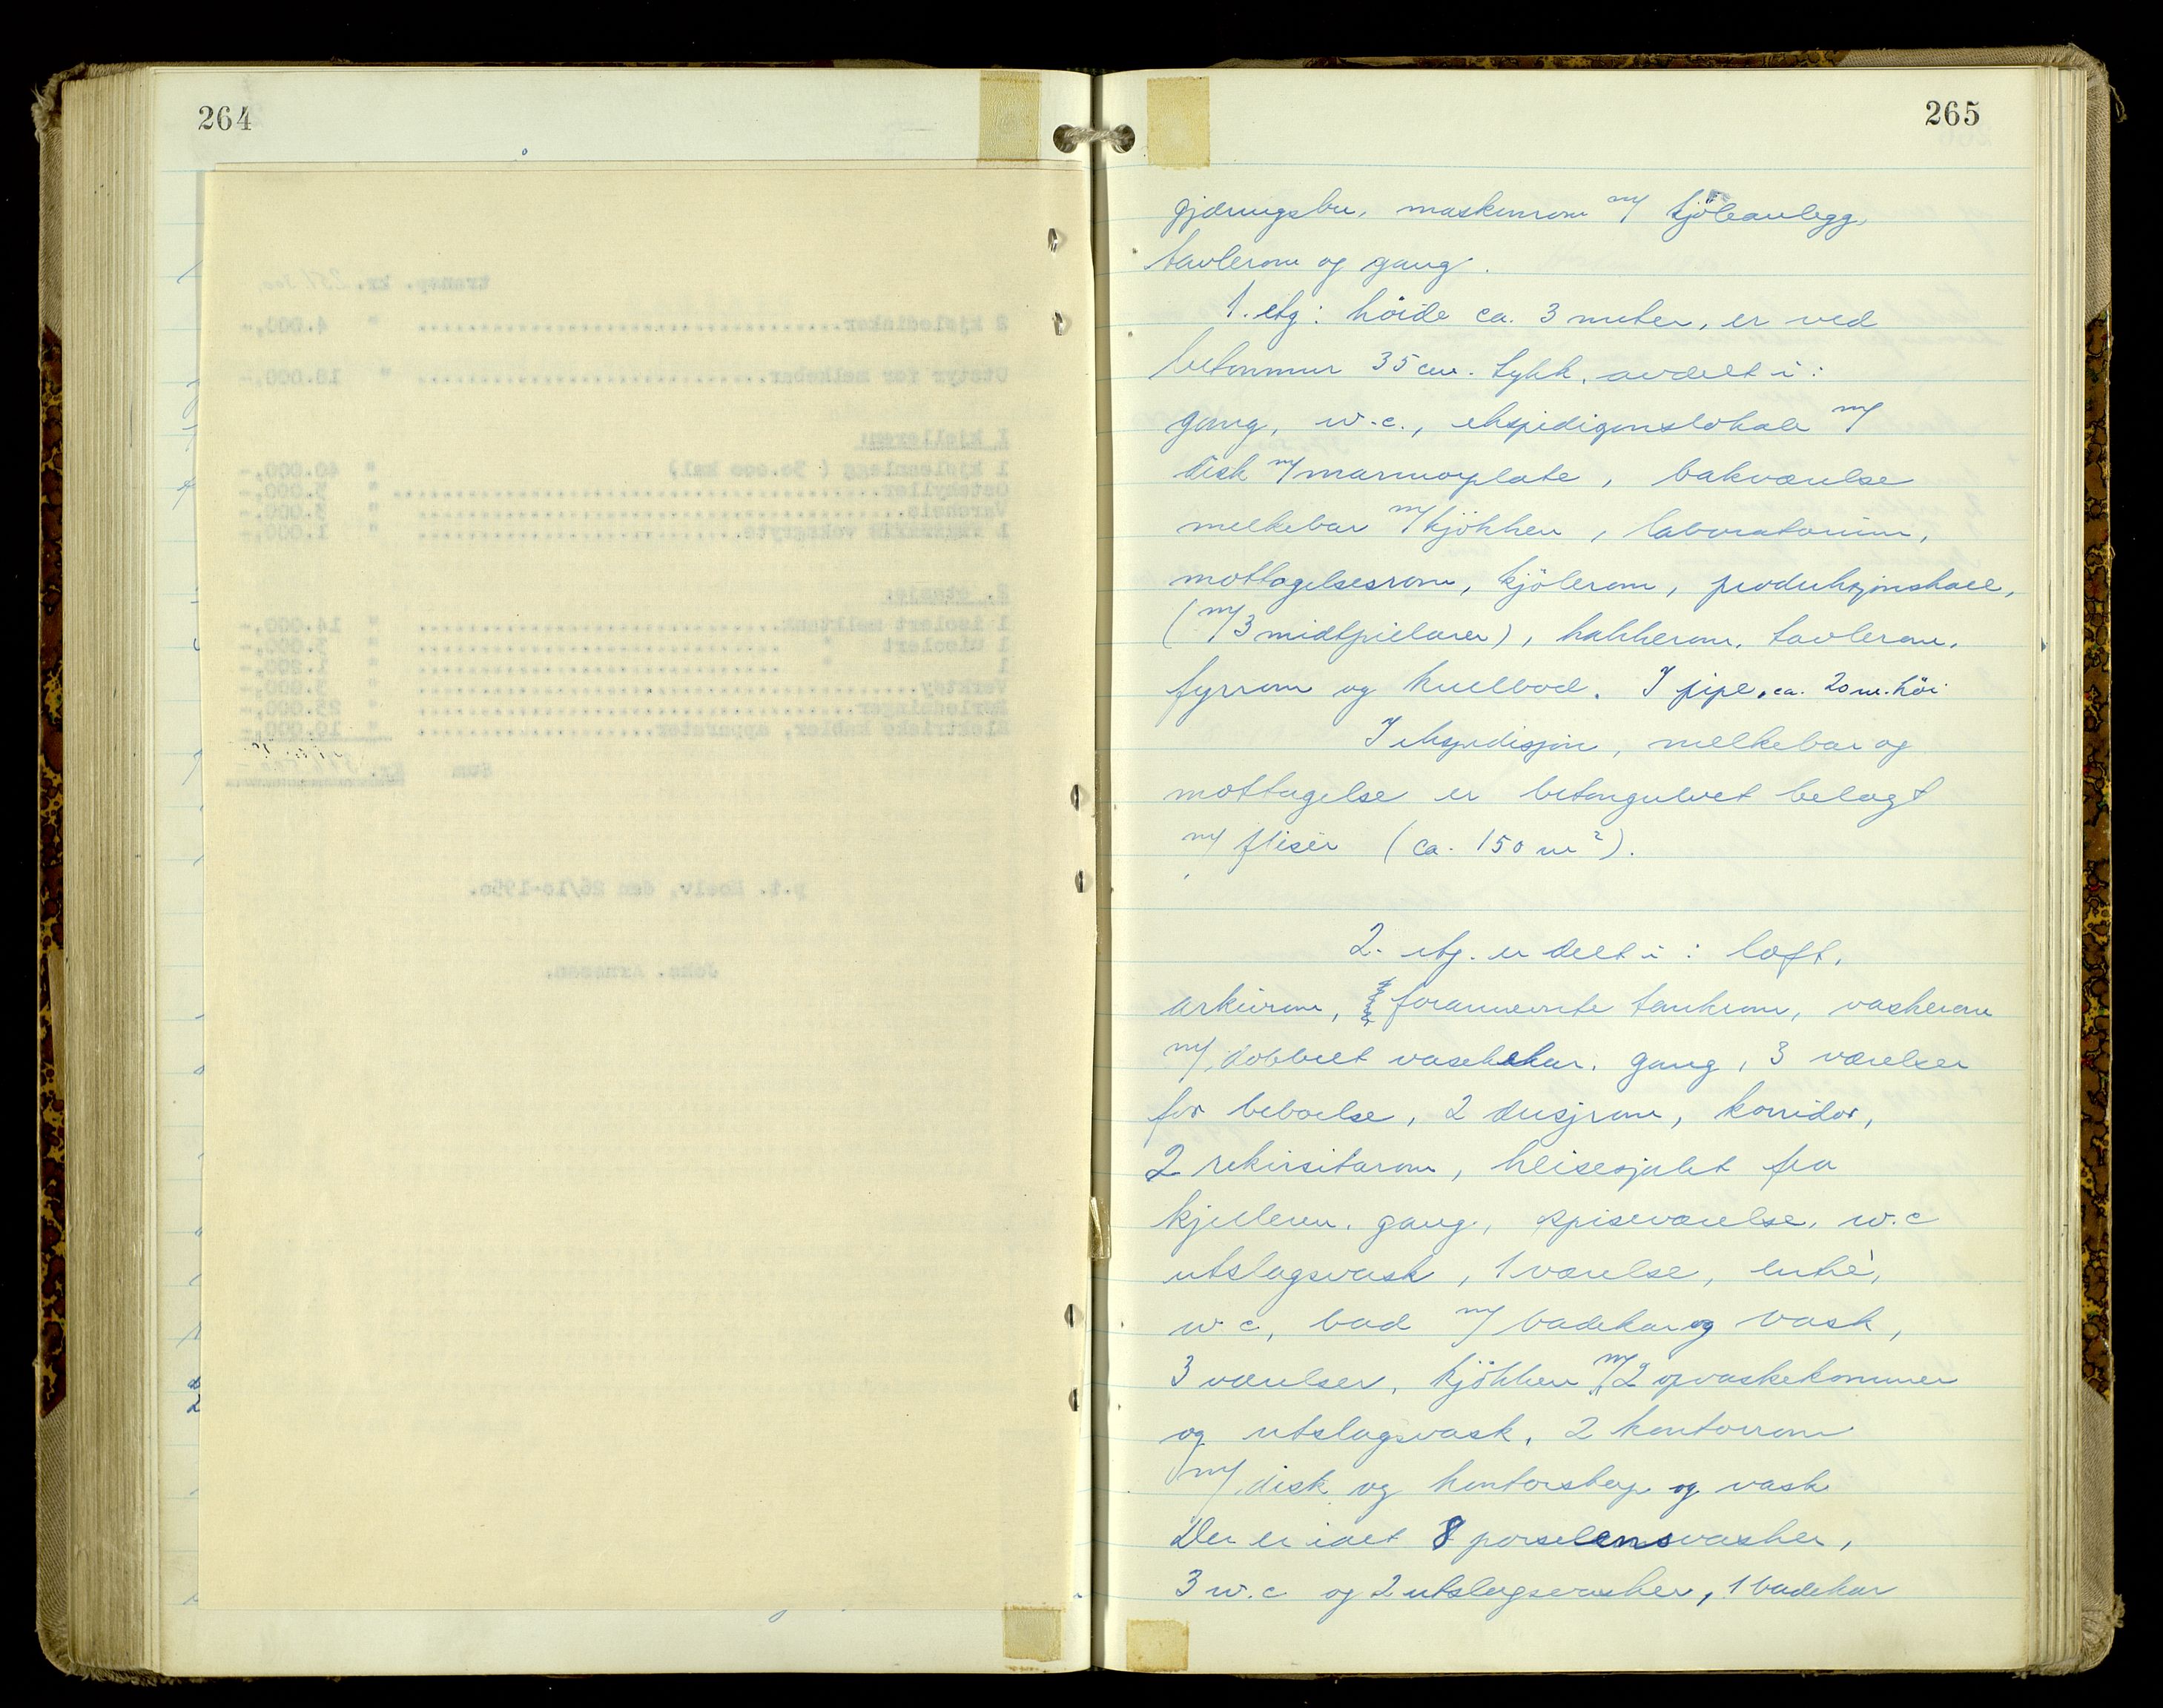 264
265
gjæringsbu, maskinrom m/ kjöleanlegg,
tavlerom og gang.
1. etg: höide ca. 3 meter, er ved
betonmur 35 cm. tykk, avdelt i:
gang, w.c., ekspidigonslokale m/
disk m/ marmorplate, bakværelse
melkebar m/ kjökken, laboratorium,
mottagelsesrom, kjölerom, produksjonshall,
(m/ 3 midtpilarer), hakkerom, tavlerom,
fyrrom og kullbod. 1 pipe, ca. 20 m. höi
I ekspedisjon, melkebar og
mottagelse er betongulvet belagt
m/ fliser (ca. 150 m²).
2. etg. er delt i: loft,
arkivrom, forannevnte tankrom, vaskerom
m/ dobbelt vaskekar, gang, 3 værelser
for beboelse, 2 dusjrom, korridor,
2 rekvisitarom, heisesjakt fra
kjelleren, gang, spiseværelse, w.c
utslagsvask, 1 værelse, entrè,
w c, bad m/ badekar og vask,
3 værelser, kjökken m/ 2 opvaskekommer
og utslagsvask, 2 kontorrom
m/ disk og kontorskap og vask
Der er ialt 8 porselensvasker,
3 w.c og 2 utslagsvasker, 1 badekar
transp. kr.
2 kjøledisker " 4.000,-
Utstyr for melkebar " 18.000,-
I kjelleren:
1 kjøleanlegg ( 30.000 kal) " 40.000,-
Ostehyller
Vareheis " 3.000,-
1 voksgryte " 1.000,-
2. etasje:
1 isolert melktank " 14.000,-
1 uisolert "
1 " " 1.200,-
Verktøy " 3.000,-
Rørledninger " 25.000,-
Elektriske kabler, apparater " 10.000,-
Sum Kr.
p.t. Moelv, den 26/10-1950.
Johs. Arnesen.